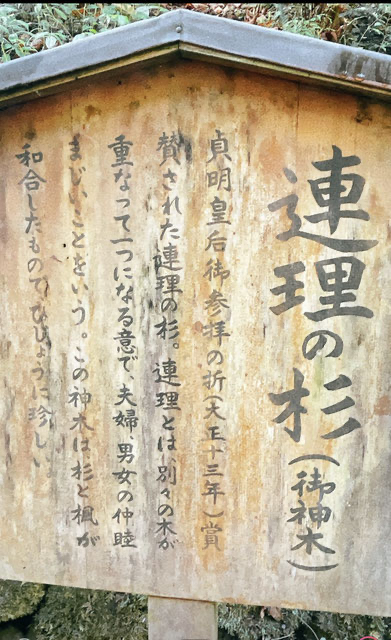 連理の杉(御神木)
貞明皇后御参拝の折(大正十三年)賞
賛された連理の杉。連理とは、別々の木が
重なって一つになる意で、夫婦、男女の仲睦
まじいことをいう。この神木は杉と楓が
和合したものでひじょうに珍しい。